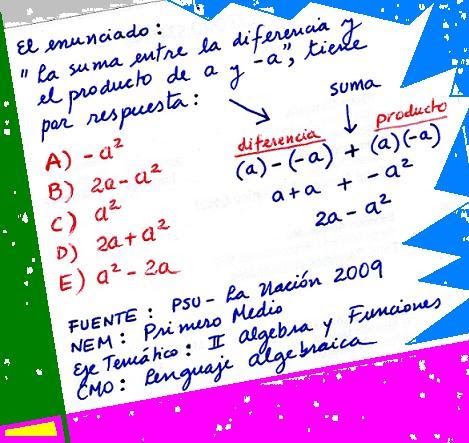 El enunciado:
"La suma entre la diferencia y
el producto de a y -a", tiene
por respuesta:
A) -a²
B) 2a-a²
C) a²
D) 2a+a²
E) a²-2a
suma
diferencia producto
(a)-(-a) + (a)(-a)
a+a + -a²
2a-a²
FUENTE: PSU- La Nación 2009
NEM: Primero Medio
Eje Temático: II Algebra y Funciones
CMO: Lenguaje algebraica